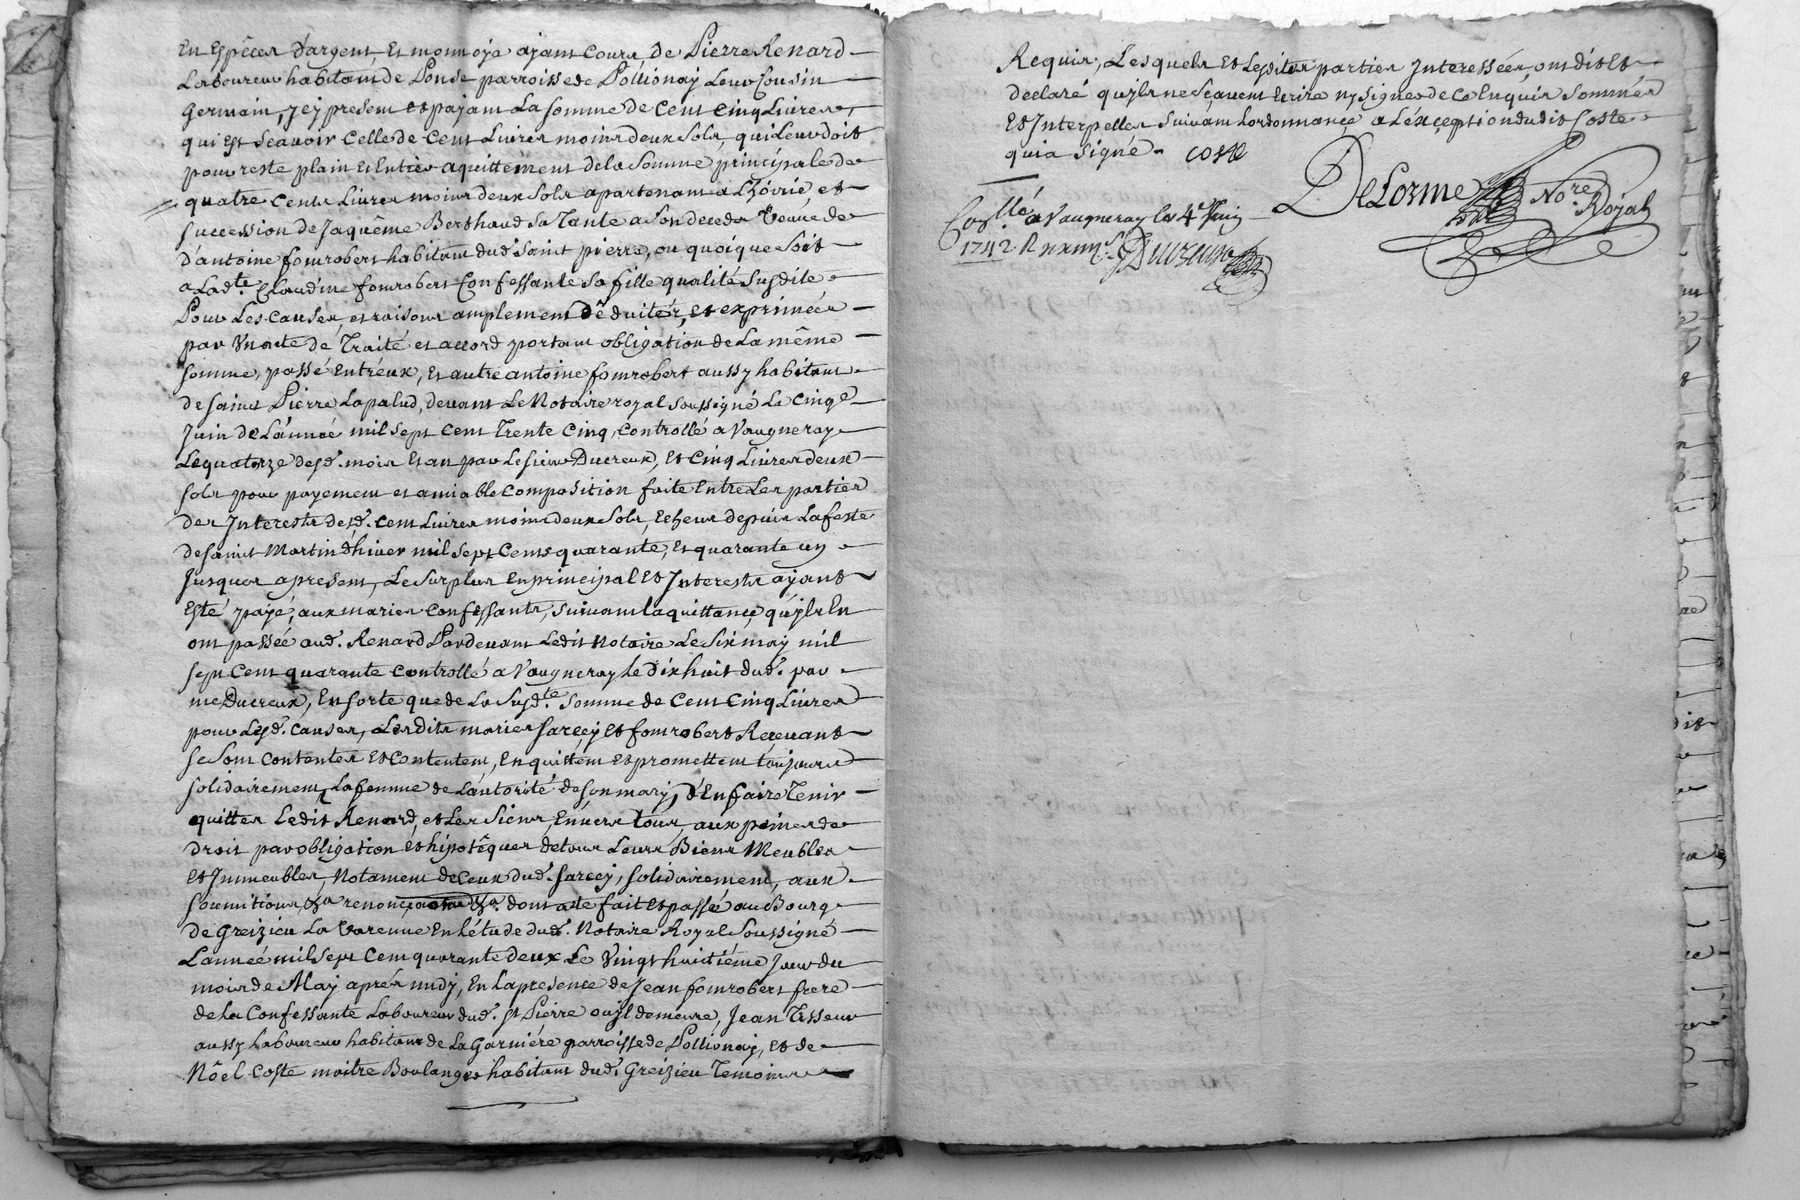 En Espêces d'argent, Et monnoye ayant cours, de Pierre Renard
Laboureur habitant de Ponse parroisse de Pollionay Leur Cousin
Germain, jcy present et payant La somme de Cent Cinq Livres,
qui Est scavoir Celle de Cent Livres moins deux Sols, qui Leur doit
pour reste plain et Entier aquittement de la Somme principale de
quatre Cents Livres moins deux Sols apartenant a L'hoirie et
succession de Jaquême Berthaud sa Tante a son decedz veuve de
d'antoine fomrobert habitant dud. Saint pierre, ou quoique Soit
a Lad.te Claudine fomrobert Confessante sa fille qualité Susdite,
Pour Les Causes, et raisons amplement dêduites, et exprimées
par Un acte de Traité et accord portant obligation de La même
somme, passé Entréux, et autre antoine fomrobert aussy habitant
de saint Pierre Lapalud, devant Le Notaire royal soussigné Le Cinq.e
Juin de L'année mil sept Cent Trente Cinq, Controllé a Vaugneray
Le quatorze desd. mois Et an par Le sieur Ducreux, et Cinq Livres deux
sols pour payement et amiable Composition faite Entre Les parties
des Interests desd. Cent Livres moins deux Sols, Echeus depuis La feste
de saint Martin d'hiver mil sept Cents quarante, et quarante un
Jusques apresent, Le Surplus En principal et Interests ayant
Esté payé, aux maries Confessants, suivant la quittance, qu'jls En
ont passée aud. Renard Pardevant Ledit Notaire Le Six may mil
sept Cent quarante Controllé a Vaugneray Le dix huit dud. par
me Ducreux, En sorte que de La Susd.te Somme de Cent Cinq Livres
pour Lesd. Causes, Lesdits maries Sarcey et fomrobert Recevants
se sont Contentes et Contentent, En quittent et promettent toujours
solidairement, La femme de L'autorité de son mary, d'En faire Tenir
quittes Ledit Renard, et Les Siens, Envers tous, aux peines de
droit par obligation et hipotêques de tous Leurs Biens Meubles
Et Immeubles, Notament de Ceux dud. Sarcey, solidairement, aux
soumitions, &a renonciations &a. dont acte fait et passé au Bourg
de Greizieu La Varenne En L'étude dud. Notaire Royal Soussigné
L'année mil sept Cent quarante deux Le Vingt huitiéme Jour du
mois de May aprés midy, En La presence de Jean fomrobert frere
de La Confessante Laboureur dud. St Pierre ou jl demeure, Jean Tisseur
aussy Laboureur habitant de La Garniére parroisse de Pollionay, et de
Nôel Coste maitre Boulanger habitant dud. Greizieu Temoins
Requis, Lesquels et Lesdites parties Interessées, ont dit et
declaré qu'jls ne Sçavent Ecrire ny Signer de Ce Enquis Sommés
Et Interpelles Suivant L'ordonnance, a L'éxception dudit Coste
qui a Signé. Coste
DeLorme No.re Royal
Con.llé a Vaugneray le 4e Juin
1742